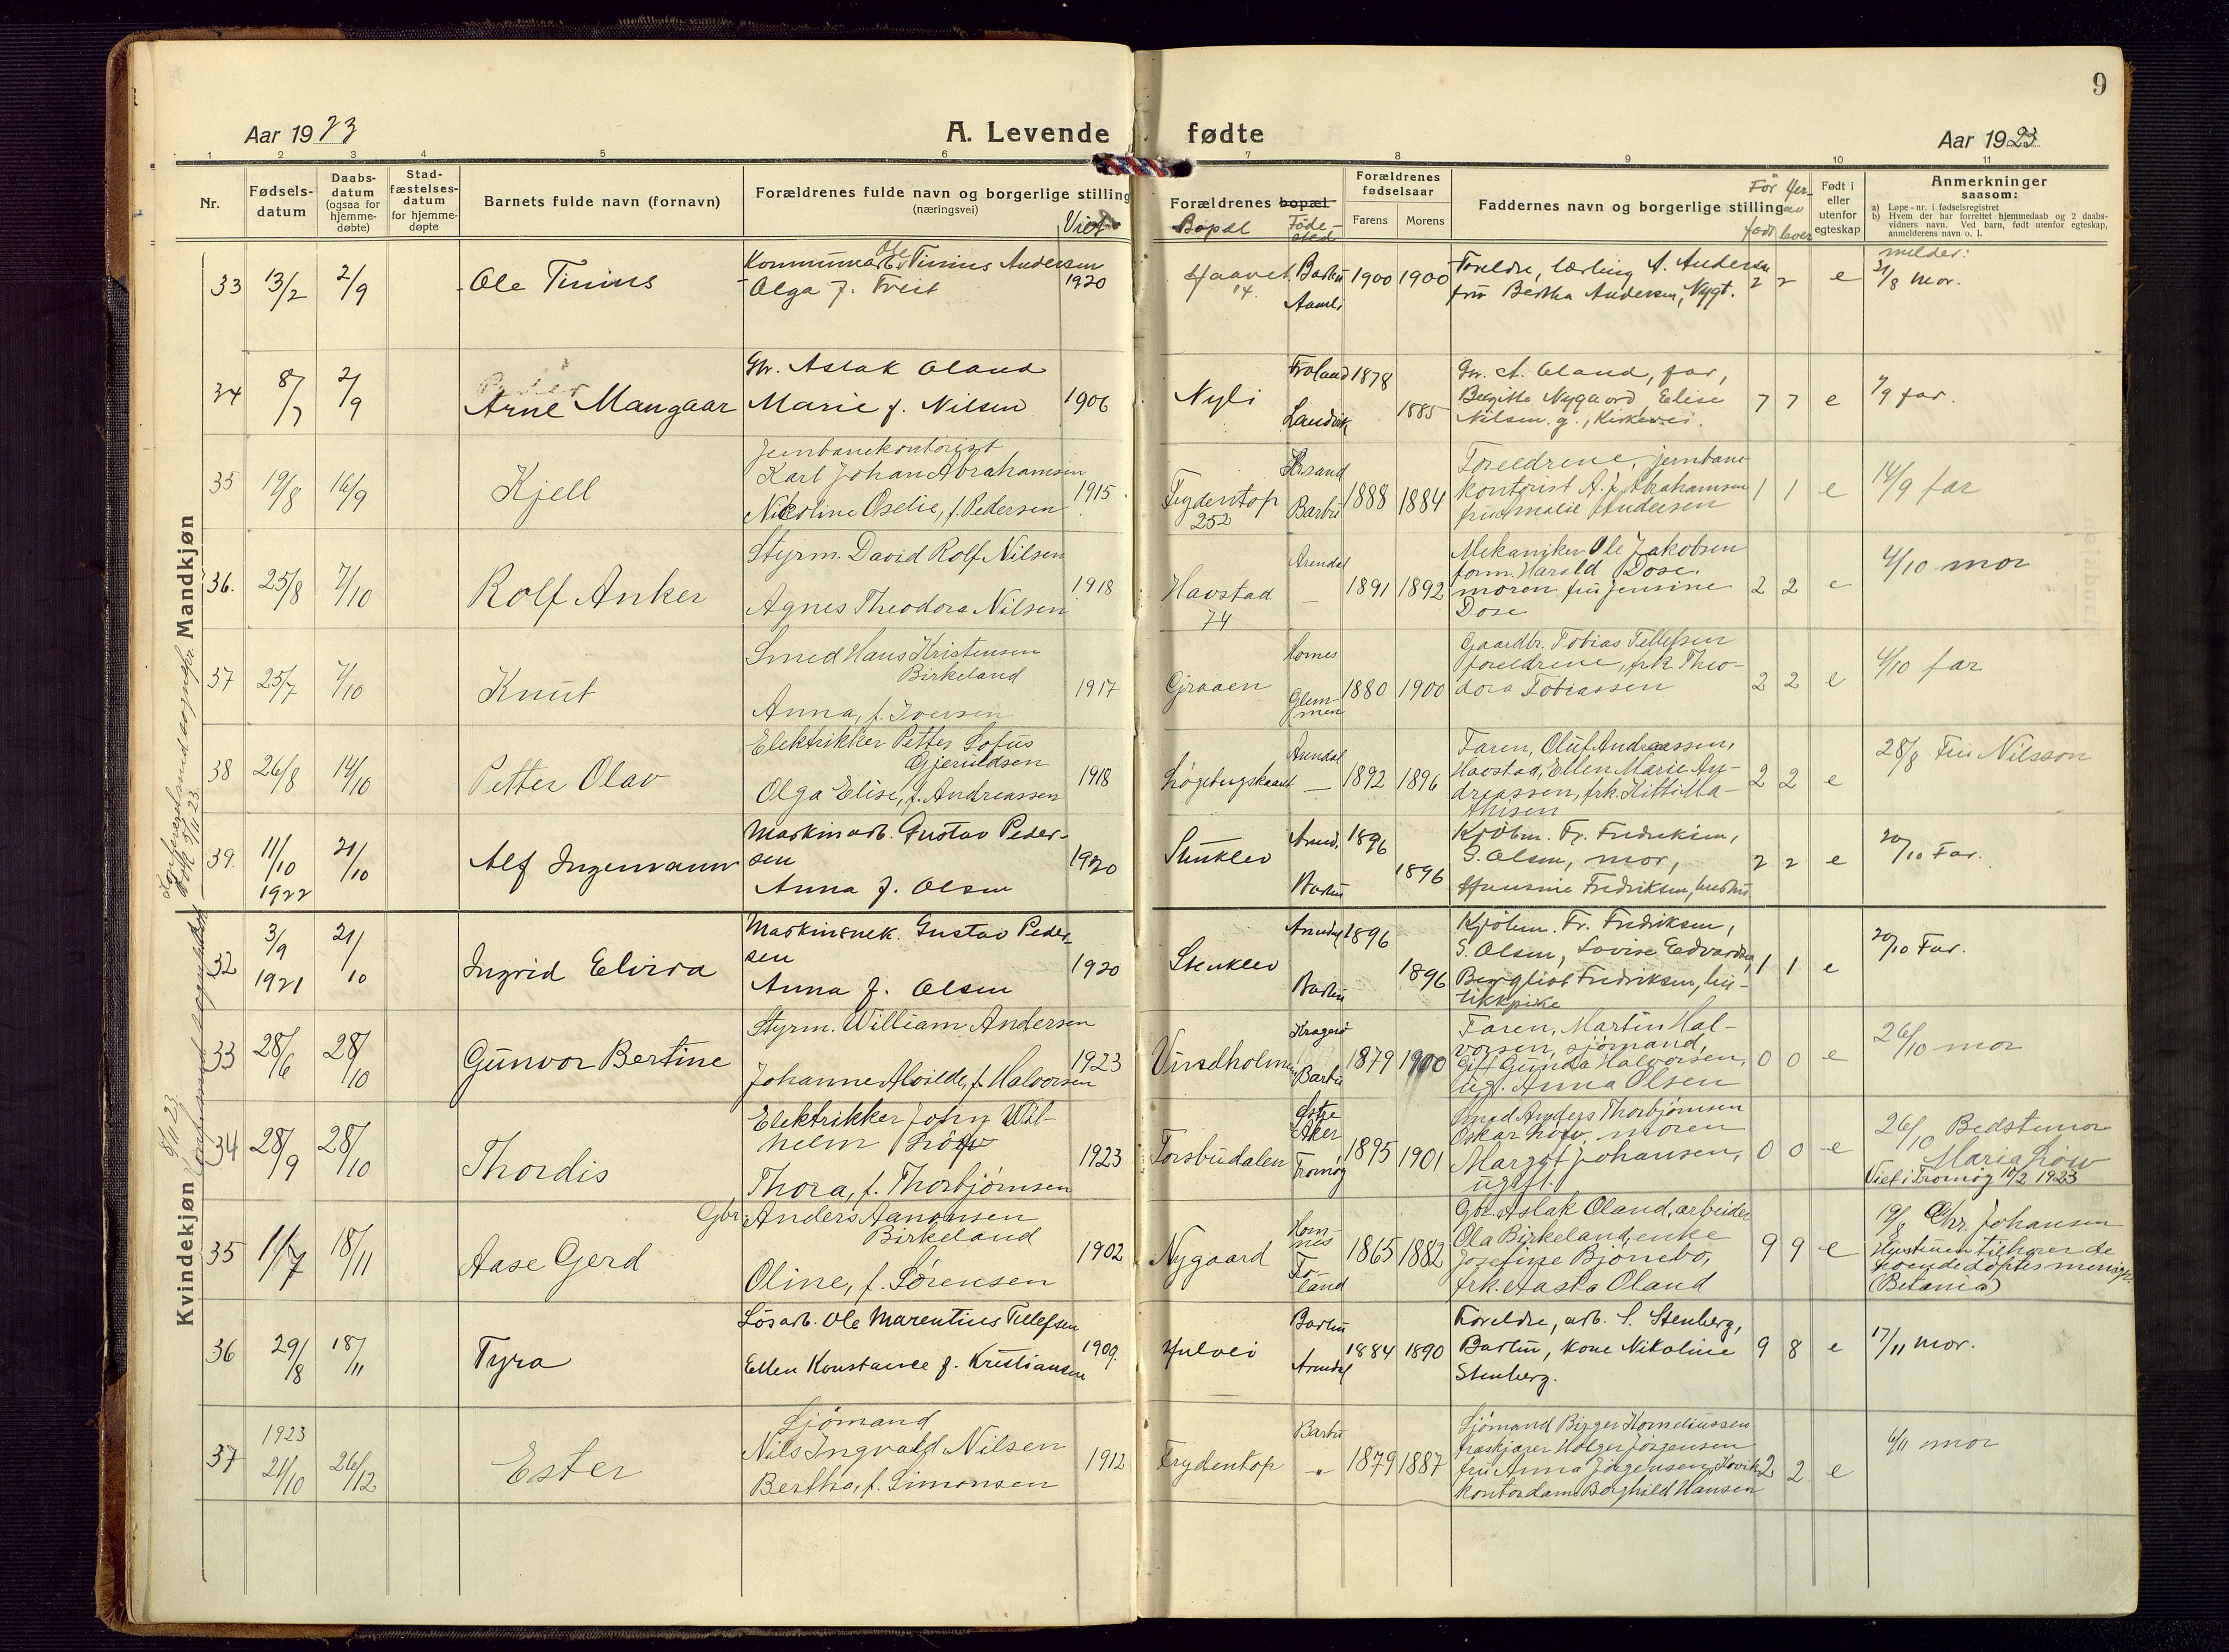 9
Aar 1923
A. Levende fødte
Aar 1923
1 2 3 4 5 6 7 8 9 10 11
Nr.
Fødsels-
datum
Daabs-
datum
(ogsaa for
hjemme-
døbte)
Stad-
fæstelses-
datum
for hjemme-
døpte
Barnets fulde navn (fornavn)
Forældrenes fulde navn og borgerlige stilling
(næringsvei)
Viet
Forældrenes bopæl
Bopæl
Føde-
sted
Forældrenes
fødselsaar
Farens Morens
Faddernes navn og borgerlige stilling
Før født
Født i
eller
utenfor
egteskap
Anmerkninger
saasom:
a) Løpe-nr. i fødselsregistret
b) Hvem der har forrettet hjemmedaab og 2 daabs-
vidners navn. Ved barn, født utenfor egteskap,
anmelderens navn o. l.
melder:
Mandkjøn
33 13/2 2/9 Ole Tinius
Kommunearb. Ole Tinius Andersen
Olga f. Tveit
1920
14
Barbu
Aamli
1900 1900
Foreldre, lærling A. Andersen
fru Bertha Andersen, Nygt.
2 2 e
31/8 mor.
34 8/7 2/9 Arne Mangaar
Gbr. Aslak Oland
Marie f. Nilsen
1906
Nyli
Froland
Landvik
1878 1885
Gbr. A. Oland, far,
Bergitte Nygaard Elise
Nilsen g., Kirkevei.
7 7 e
7/9 far.
35 19/8 16/9 Kjell
Jernbanekontorist
Karl Johan Abrahamsen
Nicoline Oselie, f. Pedersen
1915
Frydentop
252
Krsand
Barbu
1888 1884
Foreldrene, jernbane-
kontorist A. J. Abrahamsen
fru Amalie Andersen
1 1 e
14/9 far
36. 25/8 7/10 Rolf Anker
Styrm. David Rolf Nilsen
Agnes Theodora Nilsen
1918
Havstad
74
Arendal
—
1891 1892
Mekaniker Ole Jakobsen
form. Harald Dose.
moren, fru Jensine
Dose
2 2 e
4/10 mor
37 25/7 7/10 Knut
Smed Hans Kristensen
Birkeland
Anna, f. Iversen
1917
Graaen
Hornes
Glem-
men
1880 1900
Gaardbr. Tobias Tellefsen
foreldrene, frk. Theo-
dora Tobiassen
2 2 e
4/10 far
38 26/8 14/10 Petter Olav
Elektrikker Petter Lofus
Gjeruldsen
Olga Elise, f. Andreassen
1918
Arendal
—
1892 1896
Faren, Oluf Andreassen,
Havstad, Ellen Marie An-
dreassen, frk. Kitti Ma-
thisen
2 2 e
28/8 Fru Nilsson
39. 11/10
1922
21/10 Alf Ingemann
Maskinarb. Gustav Peder-
sen
Anna f. Olsen
1920
Stenklev
Arend.
Barbu
1896 1896
Kjøbm. Fr. Fredriksen,
S. Olsen, mor,
Fredriksen, hustru
2 2 e
20/10 Far.
Kvindekjøn
32 3/9
1921
21/10 Ingrid Elvira
Maskinmek. Gustav Peder-
sen
Anna f. Olsen
1920
Stenklev
Arendal
Barbu
1896 1896
Kjøbm. Fr. Fredriksen,
S. Olsen, Lovise Edvardsen,
Bergliot Fredriksen, bu-
tikkpike
1 1 e
20/10 Far.
33 28/6 28/10 Gunvor Bertine
Styrm. William Andersen
Johanne Alvilde, f. Halvorsen
1923
Vindholmen
Kragerø
Barbu
1879 1900
Faren, Martin Hal-
vorsen, sjømand,
Gift Gunda Halvorsen,
ug. Anna Olsen
0 0 e
26/10 mor
34 28/9 28/10 Thordis
Elektrikker John Wil-
helm Løw
Thora, f. Thorbjørnsen
1923
Torsbudalen
Østre
Aker
Tromøy
1895 1901
Smed Anders Thorbjørnsen
Oskar Løw, moren
Margot Johansen,
ugift.
0 0 e
26/10 Bedstemor
Maria Løw
Viet i Tromøy 10/2 1923
35 11/7 18/11 Aase Gerd
Gbr. Anders Aanonsen
Birkeland
Oline, f. Sørensen
1902
Nygaard
Horn-
nes
Fro-
land
1865 1882
Gbr. Aslak Oland, arbeider
Ola Birkeland, enke
Josefine Bjønebo,
frk. Aasta Oland
9 9 e
19/8 Chr. Johansen
Hustruen tilhører de
troende døptes menigh.
(Betania)
36 29/8 18/11 Tyra
Løsarb. Ole Marentius Tellefsen
Ellen Konstanse f. Kristiansen
1909.
Julvei
Barbu
Arendal
1884 1890
Foreldre, arb. S. Stenberg,
Barbu, kone Nikoline
Stenberg.
9 8 e
17/11 mor.
37 1923
21/10 26/12 Ester
Sjømand
Nils Ingvald Nilsen
Bertha, f. Simonsen
1912
Frydentop
Barbu
"
1879 1887
Sjømand Birger Korneliussen
træskjærer Holger Jørgensen
fru Anna Jørgensen,
kontordame Borghild Hansen
2 2 e
6/11 mor